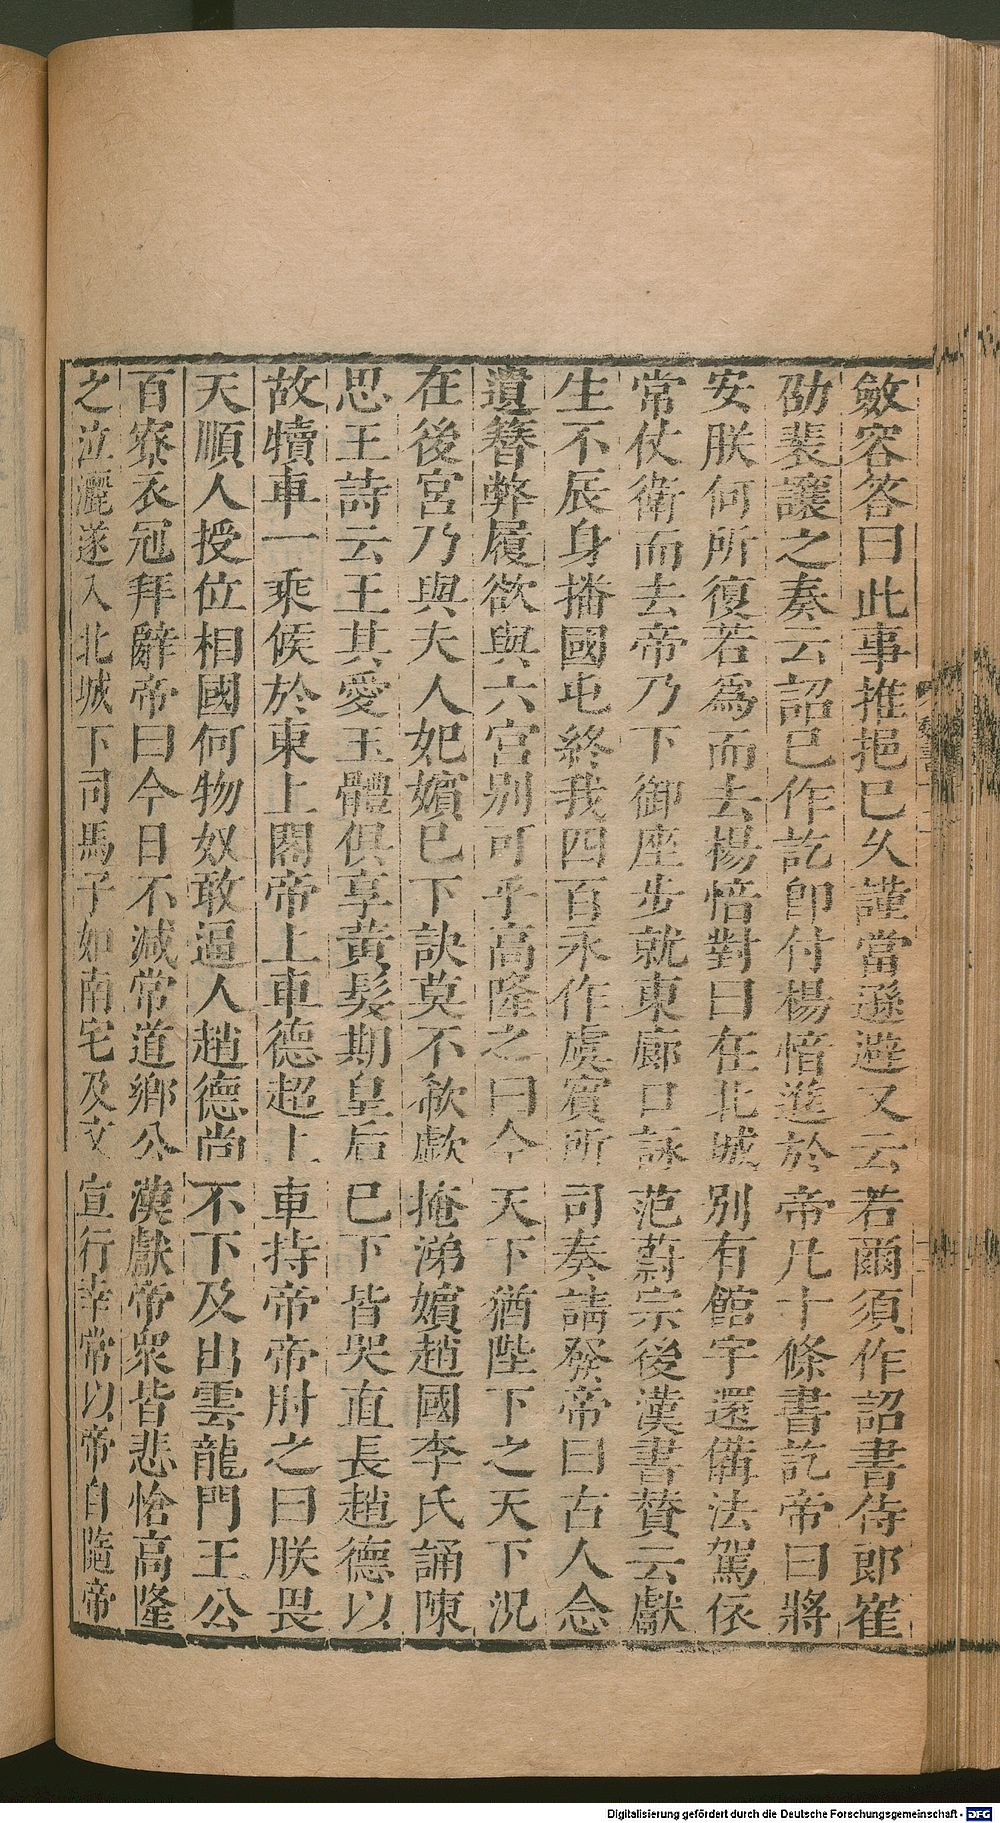 斂容答曰此事推挹已久謹當遜避又云若爾須作詔書侍郎崔
劭裴讓之奏云詔已作訖即付楊愔進於帝凡十條書訖帝曰將
安朕何所復若爲而去楊愔對曰在北城別有館宇還備法駕依
常仗衛而去帝乃下御座步就東廊口詠范蔚宗後漢書贊云獻
生不辰身播國屯終我四百永作虞賓所司奏請發帝曰古人念
遺簪弊履欲與六宮別可乎高隆之曰今天下猶陛下之天下況
在後宮乃與夫人妃嬪已下訣莫不欷歔掩涕嬪趙國李氏誦陳
思王詩云王其愛玉體俱享黃髮期皇后已下皆哭直長趙德以
故犢車一乘候於東上閤帝上車德超上車持帝帝肘之曰朕畏
天順人授位相國何物奴敢逼人趙德尚不下及出雲龍門王公
百寮衣冠拜辭帝曰今日不減常道鄉公漢獻帝衆皆悲愴高隆
之泣灑遂入北城下司馬子如南宅及文宣行幸常以帝自隨帝
Digitalisierung gefördert durch die Deutsche Forschungsgemeinschaft - DFG